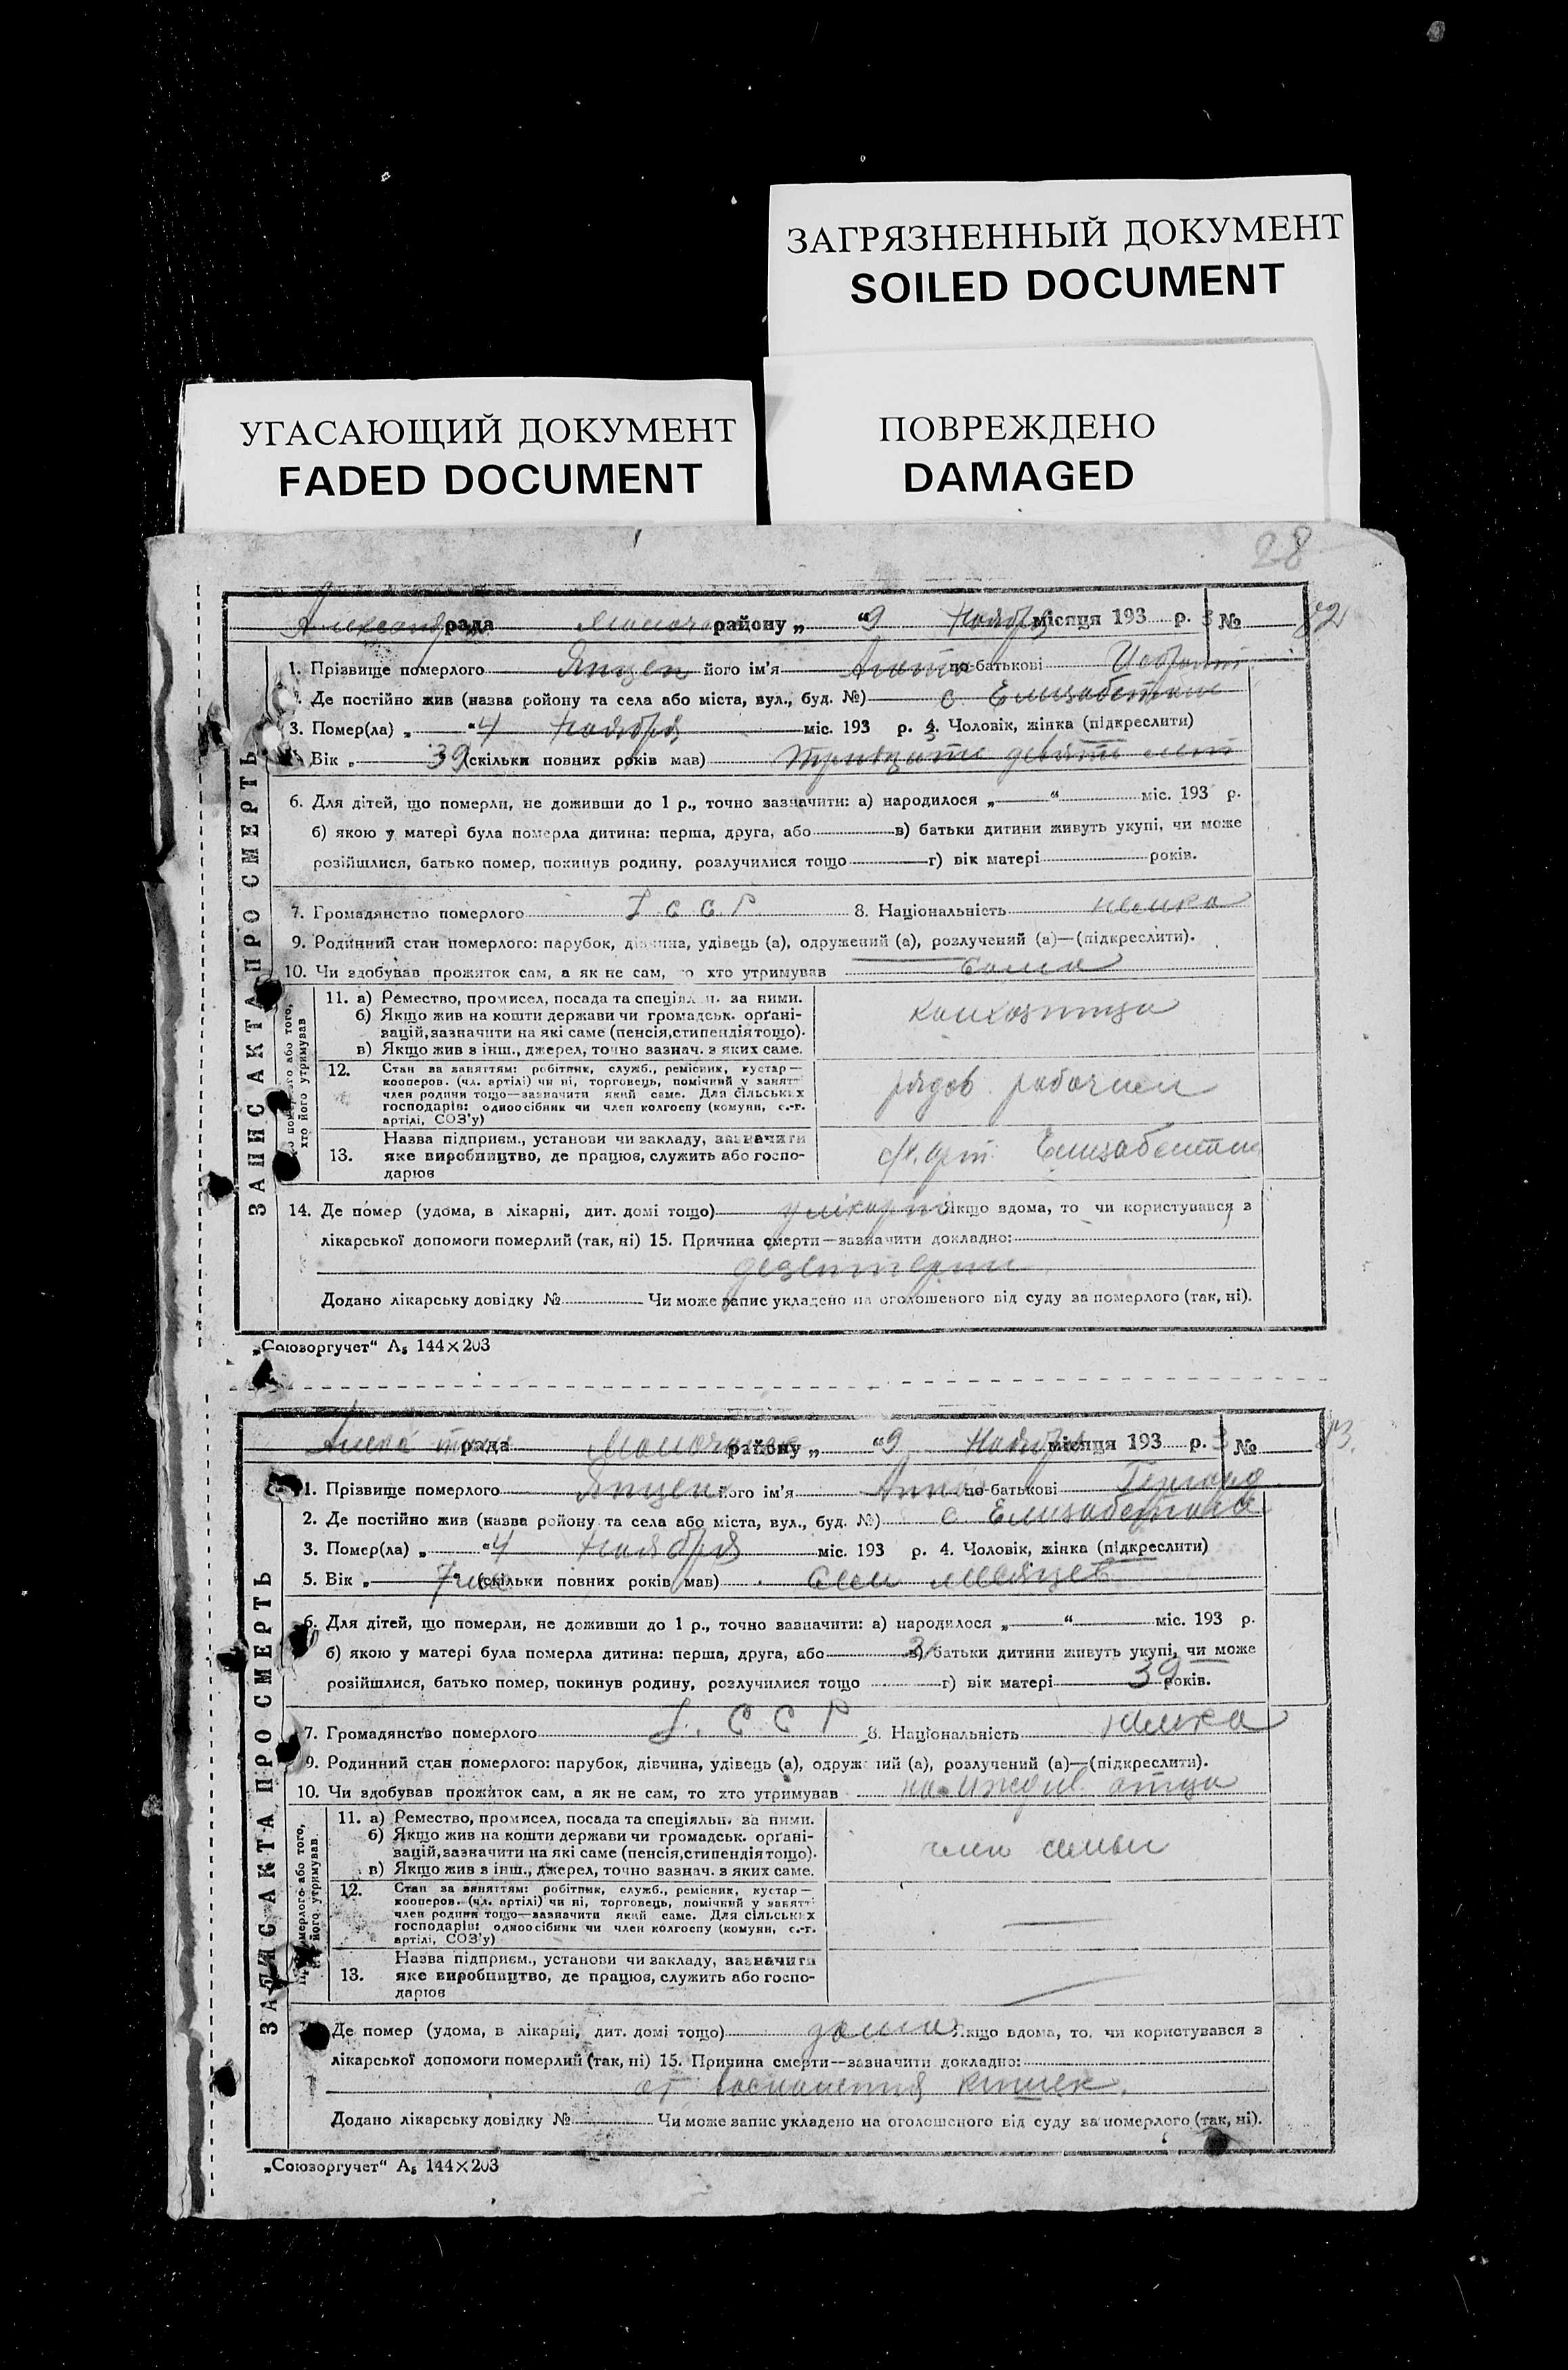 ЗАГРЯЗНЕННЫЙ ДОКУМЕНТ
SOILED DOCUMENT
УГАСАЮЩИЙ ДОКУМЕНТ
FADED DOCUMENT
ПОВРЕЖДЕНО
DAMAGED
28
рада району „ “ 9 Ноября місяця 193 3 р. № 82
ЗАПИС АКТА ПРО СМЕРТЬ
1. Прізвище померлого Янцен його ім’я по-батькові
Де постійно жив (назва ройону та села або міста, вул., буд. №) с Елизабетталь
3. Помер(ла) „ “ 4 Ноября міс. 193 3 р. 4. Чоловік, жінка (підкреслити)
Вік „ 39 (скільки повних років мав) тридцать девять лет
6. Для дітей, що померли, не доживши до 1 р., точно зазначити: а) народилося „ “ міс. 193 р.
б) якою у матері була померла дитина: перша, друга, або в) батьки дитини живуть укупі, чи може
розійшлися, батько помер, покинув родину, розлучилися тощо г) вік матері років.
7. Громадянство померлого С С Р 8. Національність немка
9. Родинний стан померлого: парубок, дівчина, удівець (а), одружений (а), розлучений (а)—(підкреслити).
10. Чи здобував прожиток сам, а як не сам, то хто утримував сама
Про померлого або того, хто його утримував
11. а) Ремество, промисел, посада та спеціяльн. за ними.
б) Якщо жив на кошти держави чи громадськ. орґані-
зацій, зазначити на які саме (пенсія, стипендія тощо).
в) Якщо жив з інш., джерел, точно зазнач. з яких саме.
колхозница
12. Стан за заняттям: робітник, служб., ремісник, кустар—
кооперов. (чл. артілі) чи ні, торговець, помічний у занятт
член родини тощо—зазначити який саме. Для сільських
господарів: одноосібник чи член колгоспу (комуни, с.-г.
артілі, СОЗ’у)
рядов рабочий
13. Назва підприєм., установи чи закладу, зазначити
яке виробництво, де працює, служить або госпо-
дарює
Елизабетталь
14. Де помер (удома, в лікарні, дит. домі тощо) у лікарні Якщо вдома, то чи користувався з
лікарської допомоги померлий (так, ні) 15. Причина смерти—зазначити докладно:
дезентерии
Додано лікарську довідку № Чи може запис укладено на оголошеного від суду за померлого (так, ні).
„Союзоргучет“ А5 144×203
рада району „ “ 9 Ноября місяця 193 3 р. № 83.
ЗАПИС АКТА ПРО СМЕРТЬ
1. Прізвище померлого Янцен його ім’я Анна по-батькові Гергард
2. Де постійно жив (назва ройону та села або міста, вул., буд. №) с. Елизабетталь
3. Помер(ла) „ “ 4 Ноября міс. 193 р. 4. Чоловік, жінка (підкреслити)
5. Вік „ 7 мес “ (скільки повних років мав) Сем месяцев
6. Для дітей, що померли, не доживши до 1 р., точно зазначити: а) народилося „ “ міс. 193 р.
б) якою у матері була померла дитина: перша, друга, або в) батьки дитини живуть укупі, чи може
розійшлися, батько помер, покинув родину, розлучилися тощо г) вік матері 39 років.
7. Громадянство померлого С С Р 8. Національність немка
9. Родинний стан померлого: парубок, дівчина, удівець (а), одружений (а), розлучений (а)—(підкреслити).
10. Чи здобував прожиток сам, а як не сам, то хто утримував на иждив. отца
Про померлого або того, хто його утримував
11. а) Ремество, промисел, посада та спеціяльн. за ними.
б) Якщо жив на кошти держави чи громадськ. орґані-
зацій, зазначити на які саме (пенсія, стипендія тощо).
в) Якщо жив з інш., джерел, точно зазнач. з яких саме.
член семьи
12. Стан за заняттям: робітник, служб., ремісник, кустар—
кооперов. (чл. артілі) чи ні, торговець, помічний у занятт
член родини тощо—зазначити який саме. Для сільських
господарів: одноосібник чи член колгоспу (комуни, с.-г.
артілі, СОЗ’у)
13. Назва підприєм., установи чи закладу, зазначити
яке виробництво, де працює, служить або госпо-
дарює
Де помер (удома, в лікарні, дит. домі тощо) дома Якщо вдома, то чи користувався з
лікарської допомоги померлий (так, ні) 15. Причина смерти—зазначити докладно:
от воспаления кишек.
Додано лікарську довідку № Чи може запис укладено на оголошеного від суду за померлого (так, ні).
„Союзоргучет“ А5 144×203